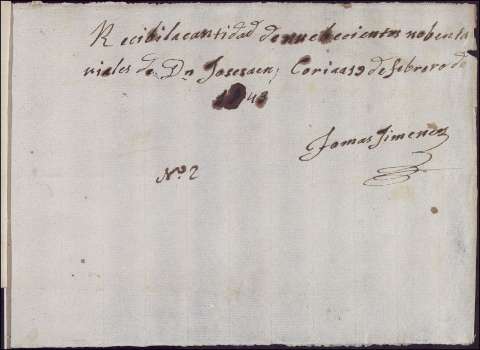 Recibi la cantidad de nuebecientos nobenta
riales de Dn Jose saen, Coria a 19 de febrero de
1843
Tomas Jimenez
No. 2